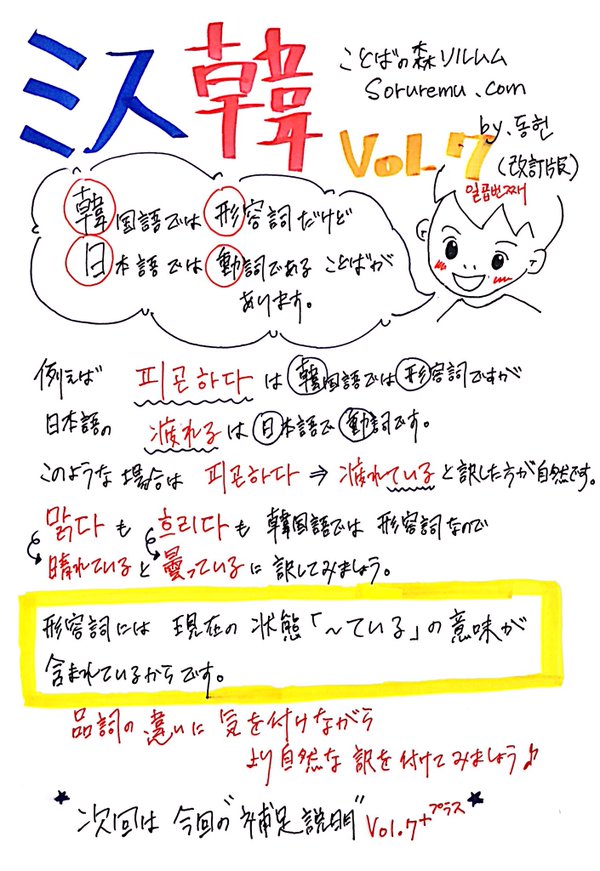 ミス韓
ことばの森ソルルム
Soruremu.com
by.동헌
Vol.7
(改訂版)
일곱번째
韓国語では形容詞だけど
日本語では動詞である ことばが
あります。
例えば 피곤하다 は韓国語では形容詞ですが
日本語の 疲れる は日本語で動詞です。
このような場合は 피곤하다 ⇒ 疲れている と訳した方が自然です。
맑다 も 흐리다 も 韓国語では 形容詞なので
晴れている と 曇っている に 訳してみましょう。
形容詞には 現在の 状態「～ている」の 意味が
含まれているからです。
品詞の 違いに 気を付けながら
より自然な 訳を付けてみましょう♪
★次回は 今回の"補足説明" Vol.7+プラス★